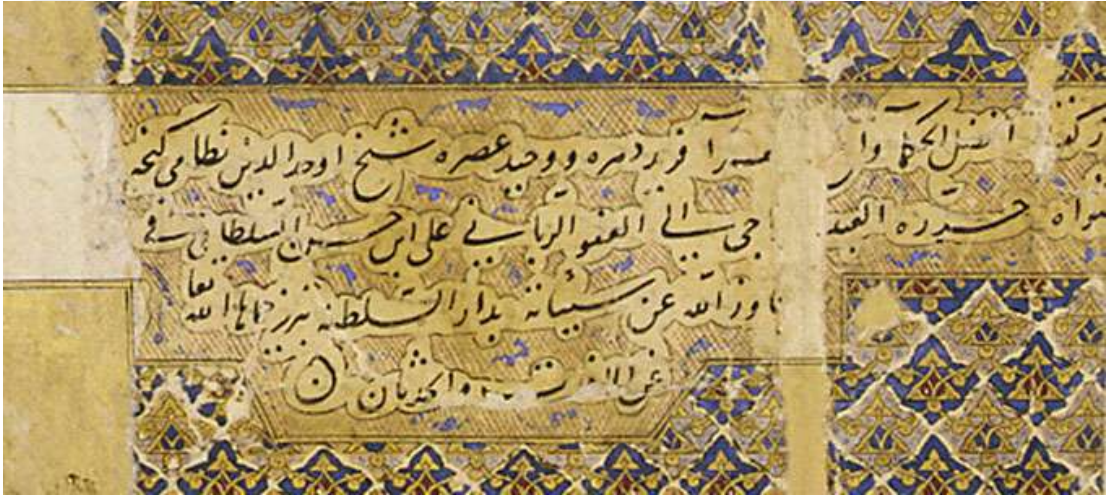 افضل الحکما وا فرد دهره و وحید عصره شیخ اوحد الدین نظامی کنجه
مثواه حرره العبد اجی الی العفو الربانی علی ابن حسن السلطانی فی
وز الله عن سیئاته بدار السلطنه تبریز حماها الله تعا
عن والحدثان